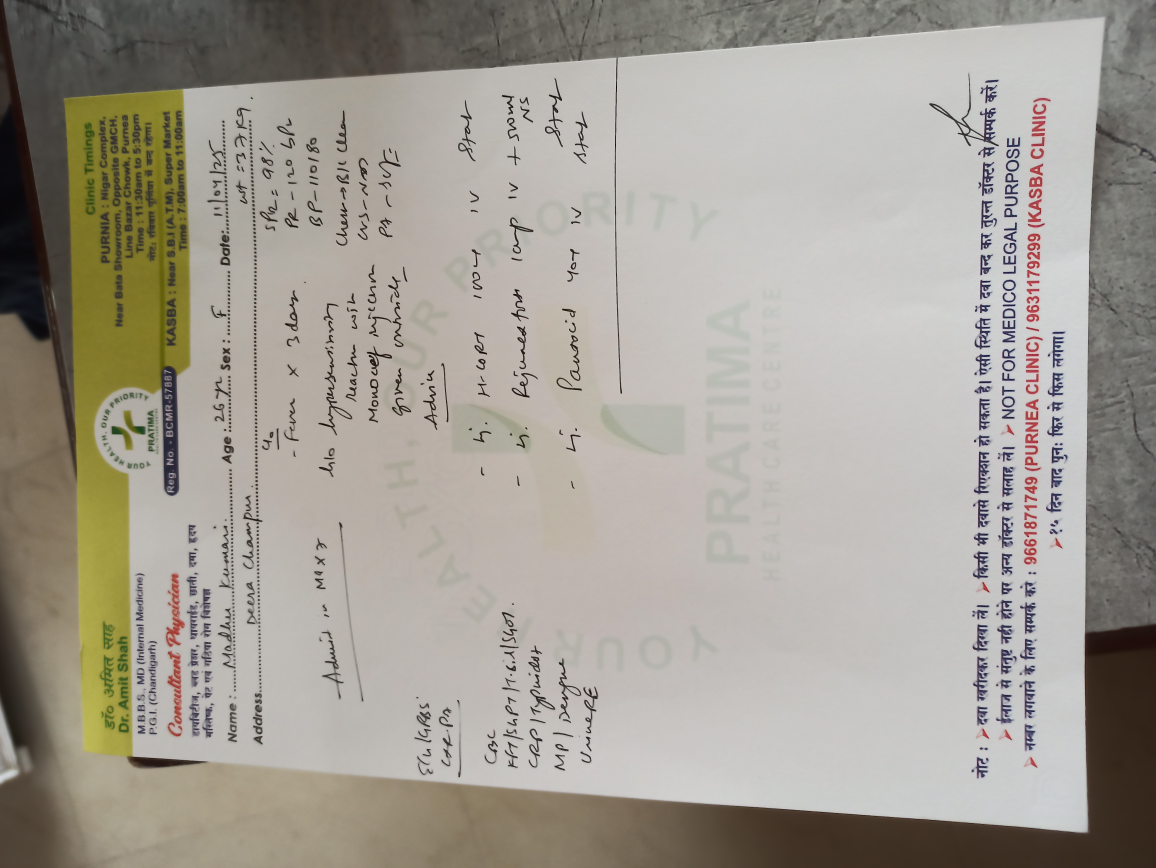 डॉ० अमित साह
Dr. Amit Shah
M.B.B.S., MD (Internal Medicine)
P.G.I. (Chandigarh)
Consultant Physician
डायबिटीज, ब्लड प्रेशर, थायराईड, छाती, दमा, हृदय
मस्तिष्क, पेट एवं गठिया रोग विशेषज्ञ
YOUR HEALTH, OUR PRIORITY
PRATIMA
Reg. No. - BCMR-57887
Clinic Timings
PURNIA : Nigar Complex,
Near Bata Showroom, Opposite GMCH,
Line Bazar Chowk, Purnea
Time : 11:30am to 5:30pm
नोट: रविवार पूर्णिया में बन्द रहेगा।
KASBA : Near S.B.I (A.T.M), Super Market
Time : 7:00am to 11:00am
Name : Madhu Kumari. Age : 26 yr Sex : F Date: 11/04/25
Address Deera Champur wt = 37 kg.
- Fever x 3 days.
SP02 = 98%
PR - 120 bpm
BP - 110/80
Chest → B/L Clear
CVS - NAD
PA - soft
- Admit in
h/o hypersensitivity
reaction with
Monocef injection
given outside
Advice
ECG/GRBS
CXR-PA
CBC
KFT/SGPT/T.Bil/SGOT.
CRP/Typhidot
MP/Dengue
Urine RE
- Inj. H-CORT 100 mg IV Stat
- Inj. 1 amp IV + 500ml NS Stat
- Inj. Pantocid 40 mg IV Stat
YOUR HEALTH, OUR PRIORITY
PRATIMA
HEALTHCARE CENTRE
नोट : ➤ दवा खरीदकर दिखा लें। ➤ किसी भी दवासे रिएक्शन हो सकता है। ऐसी स्थिति में दवा बन्द कर तुरन्त डॉक्टर से सम्पर्क करें।
➤ ईलाज से संतुष्ट नही होने पर अन्य डॉक्टर से सलाह लें। ➤ NOT FOR MEDICO LEGAL PURPOSE
➤ नम्बर लगवाने के लिए सम्पर्क करे : 9661871749 (PURNEA CLINIC) / 9631179299 (KASBA CLINIC)
➤ १५ दिन बाद पुन: फिर से फिस लगेगा।